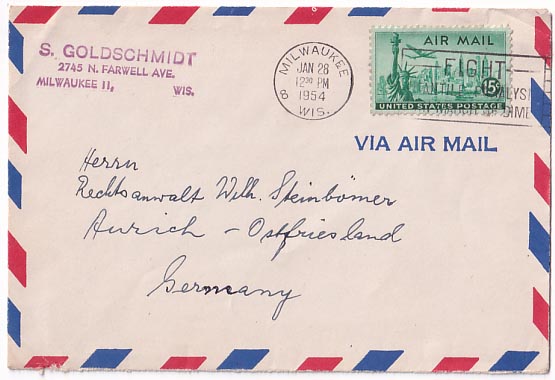 S. GOLDSCHMIDT
2745 N. FARWELL AVE.
MILWAUKEE 11, WIS.
MILWAUKEE
JAN 28
12 30 PM
1954
WIS.
8
AIR MAIL
15¢
UNITED STATES POSTAGE
FIGHT
INFANTILE PARALYSIS
MARCH OF DIMES
VIA AIR MAIL
Herrn
Rechtsanwalt Wilh. Steinbömer
Aurich - Ostfriesland
Germany